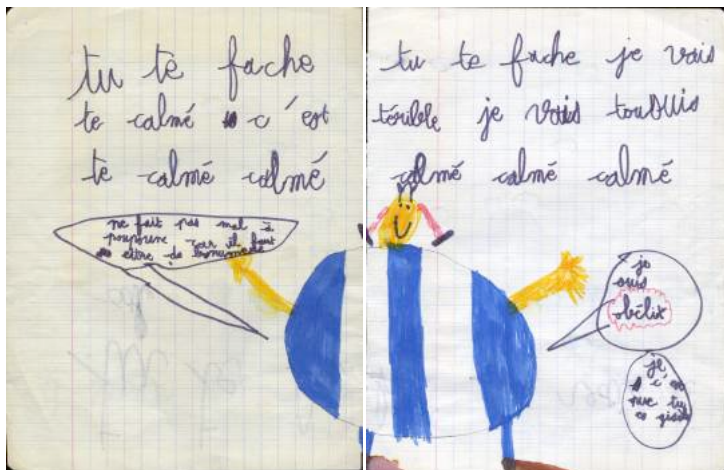 tu te fache
te calmé c'est
te calmé calmé
ne fait pas mal à
poupoune car il faut
être de
tu te fache je vais
térible je vais touSUis
calmé calmé calmé
je
suis
obélix
je
c'est
que tu